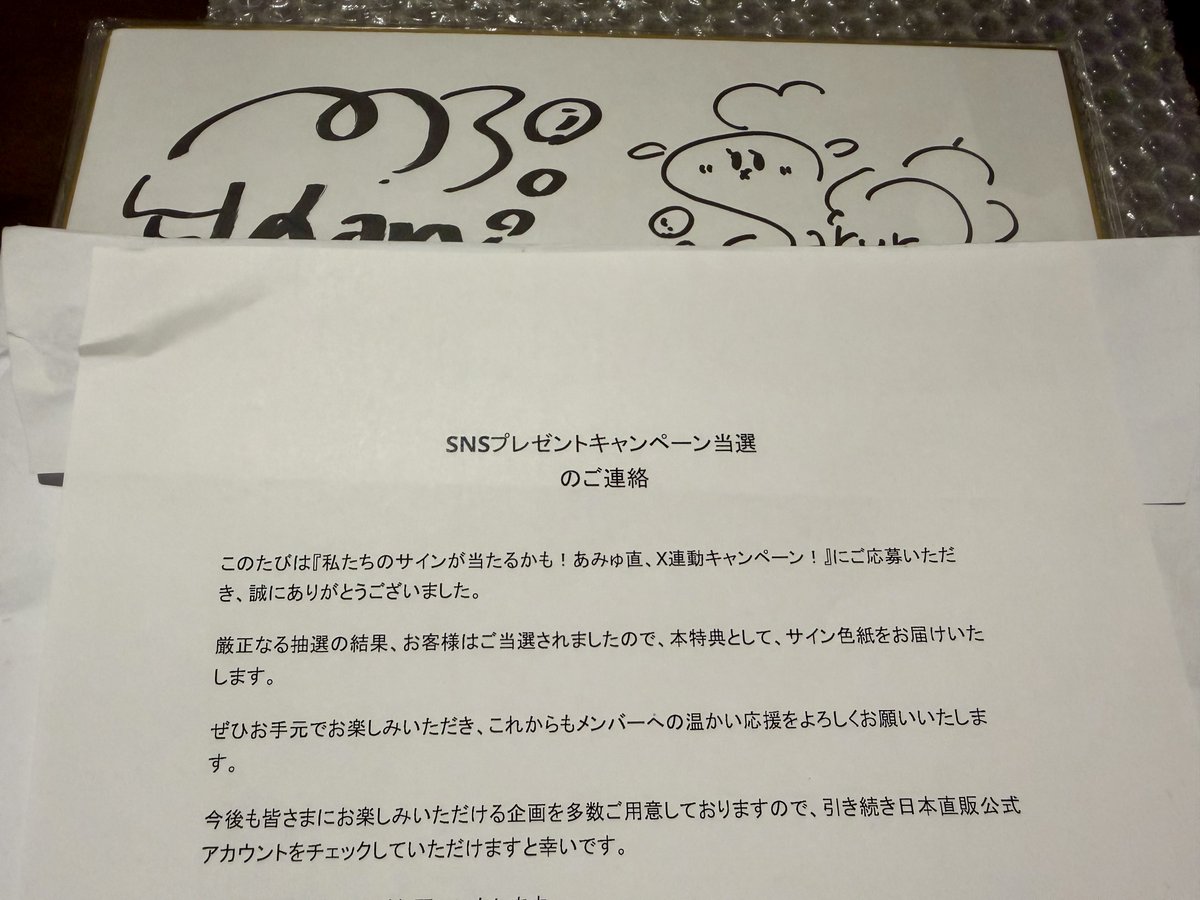 SNSプレゼントキャンペーン当選
のご連絡
このたびは『私たちのサインが当たるかも！あみゅ直、X連動キャンペーン！』にご応募いただ
き、誠にありがとうございました。
厳正なる抽選の結果、お客様はご当選されましたので、本特典として、サイン色紙をお届けいた
します。
ぜひお手元でお楽しみいただき、これからもメンバーへの温かい応援をよろしくお願いいたしま
す。
今後も皆さまにお楽しみいただける企画を多数ご用意しておりますので、引き続き日本直販公式
アカウントをチェックしていただけますと幸いです。